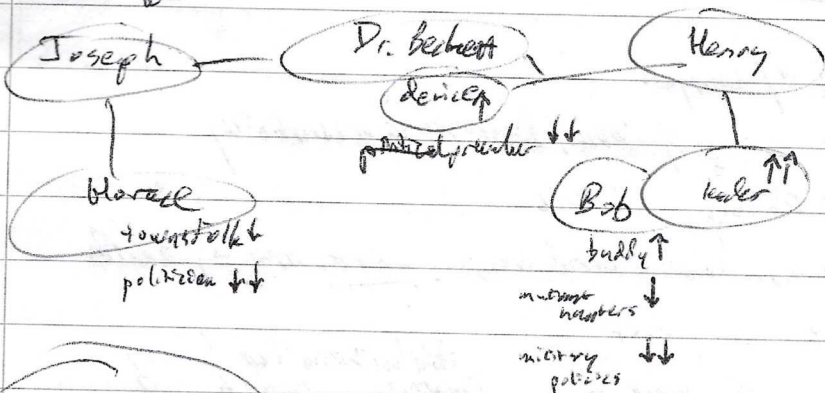 Joseph
Dr. Beckett
Henry
device ↑
political ↓↓
Horace
townsfolk ↓
politician ↓↓
Bob
leader ↑↑
buddy ↑
mutant hunters ↓
military policies ↓↓